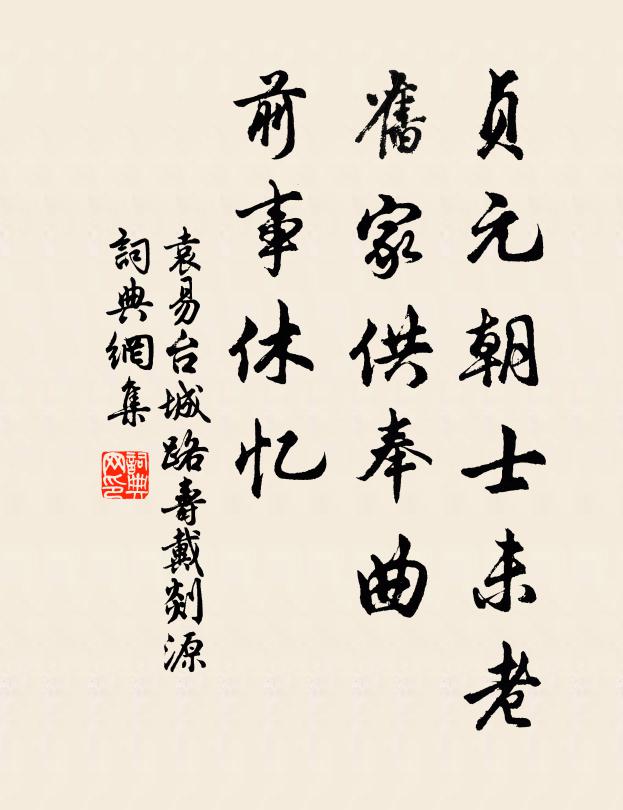 貞元朝士未老
舊家供奉曲
前事休忆
袁易台城路壽戴剡源
詞典網集
詞典網印